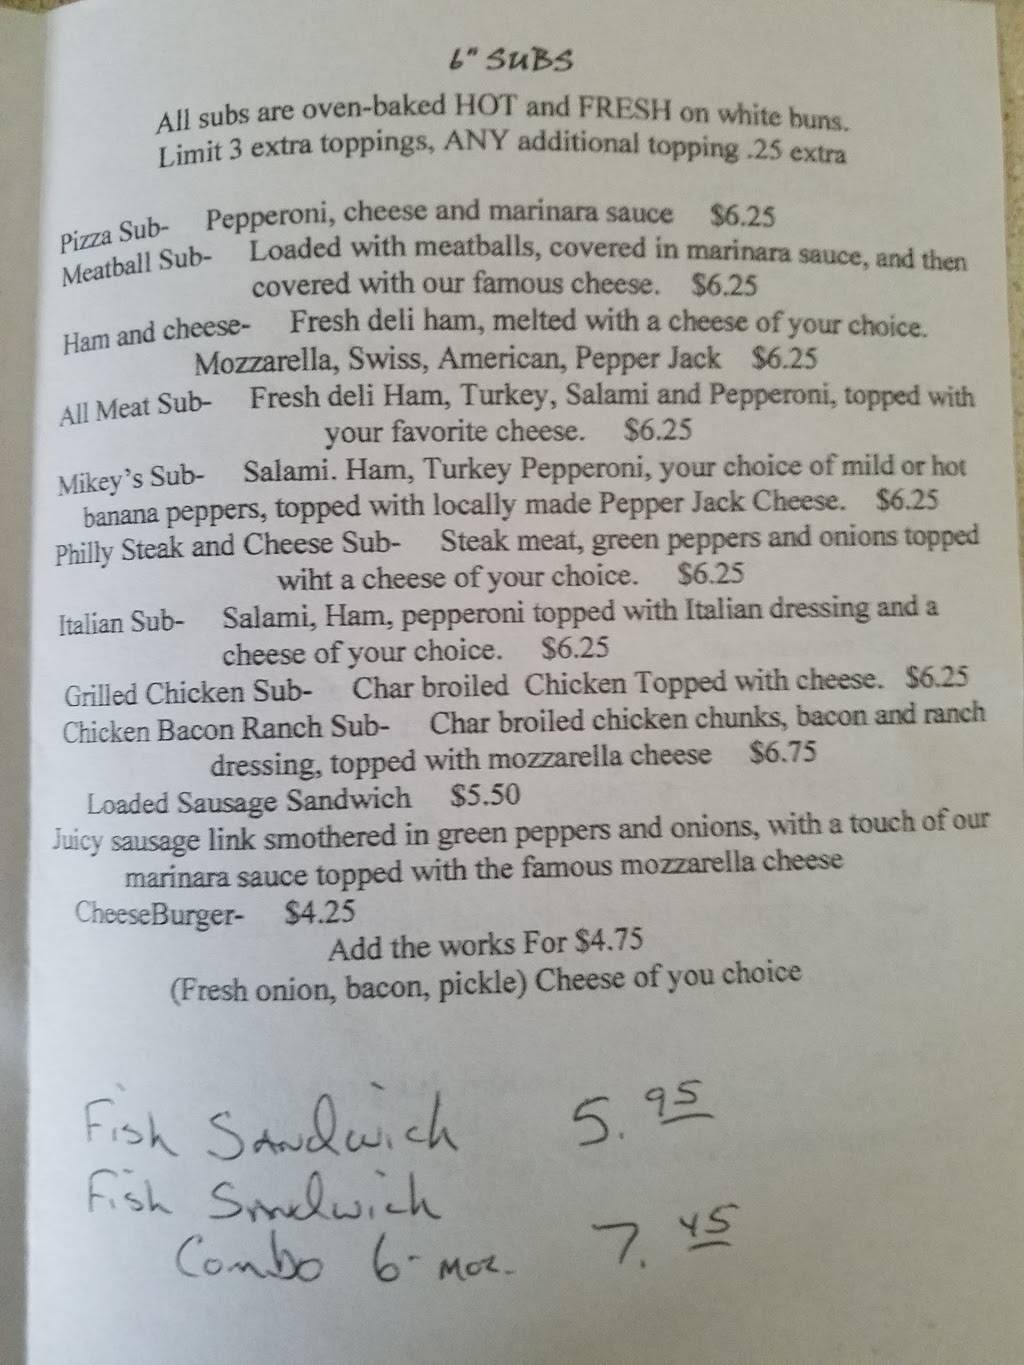 6" SUBS
All subs are oven-baked HOT and FRESH on white buns.
Limit 3 extra toppings, ANY additional topping .25 extra
Pizza Sub- Pepperoni, cheese and marinara sauce $6.25
Meatball Sub- Loaded with meatballs, covered in marinara sauce, and then
covered with our famous cheese. $6.25
Ham and cheese- Fresh deli ham, melted with a cheese of your choice.
Mozzarella, Swiss, American, Pepper Jack $6.25
All Meat Sub- Fresh deli Ham, Turkey, Salami and Pepperoni, topped with
your favorite cheese. $6.25
Mikey's Sub- Salami. Ham, Turkey Pepperoni, your choice of mild or hot
banana peppers, topped with locally made Pepper Jack Cheese. $6.25
Philly Steak and Cheese Sub- Steak meat, green peppers and onions topped
wiht a cheese of your choice. $6.25
Italian Sub- Salami, Ham, pepperoni topped with Italian dressing and a
cheese of your choice. $6.25
Grilled Chicken Sub- Char broiled Chicken Topped with cheese. $6.25
Chicken Bacon Ranch Sub- Char broiled chicken chunks, bacon and ranch
dressing, topped with mozzarella cheese $6.75
Loaded Sausage Sandwich $5.50
Juicy sausage link smothered in green peppers and onions, with a touch of our
marinara sauce topped with the famous mozzarella cheese
CheeseBurger- $4.25
Add the works For $4.75
(Fresh onion, bacon, pickle) Cheese of you choice
Fish Sandwich 5.95
Fish Sandwich
Combo 6-moz. 7.45